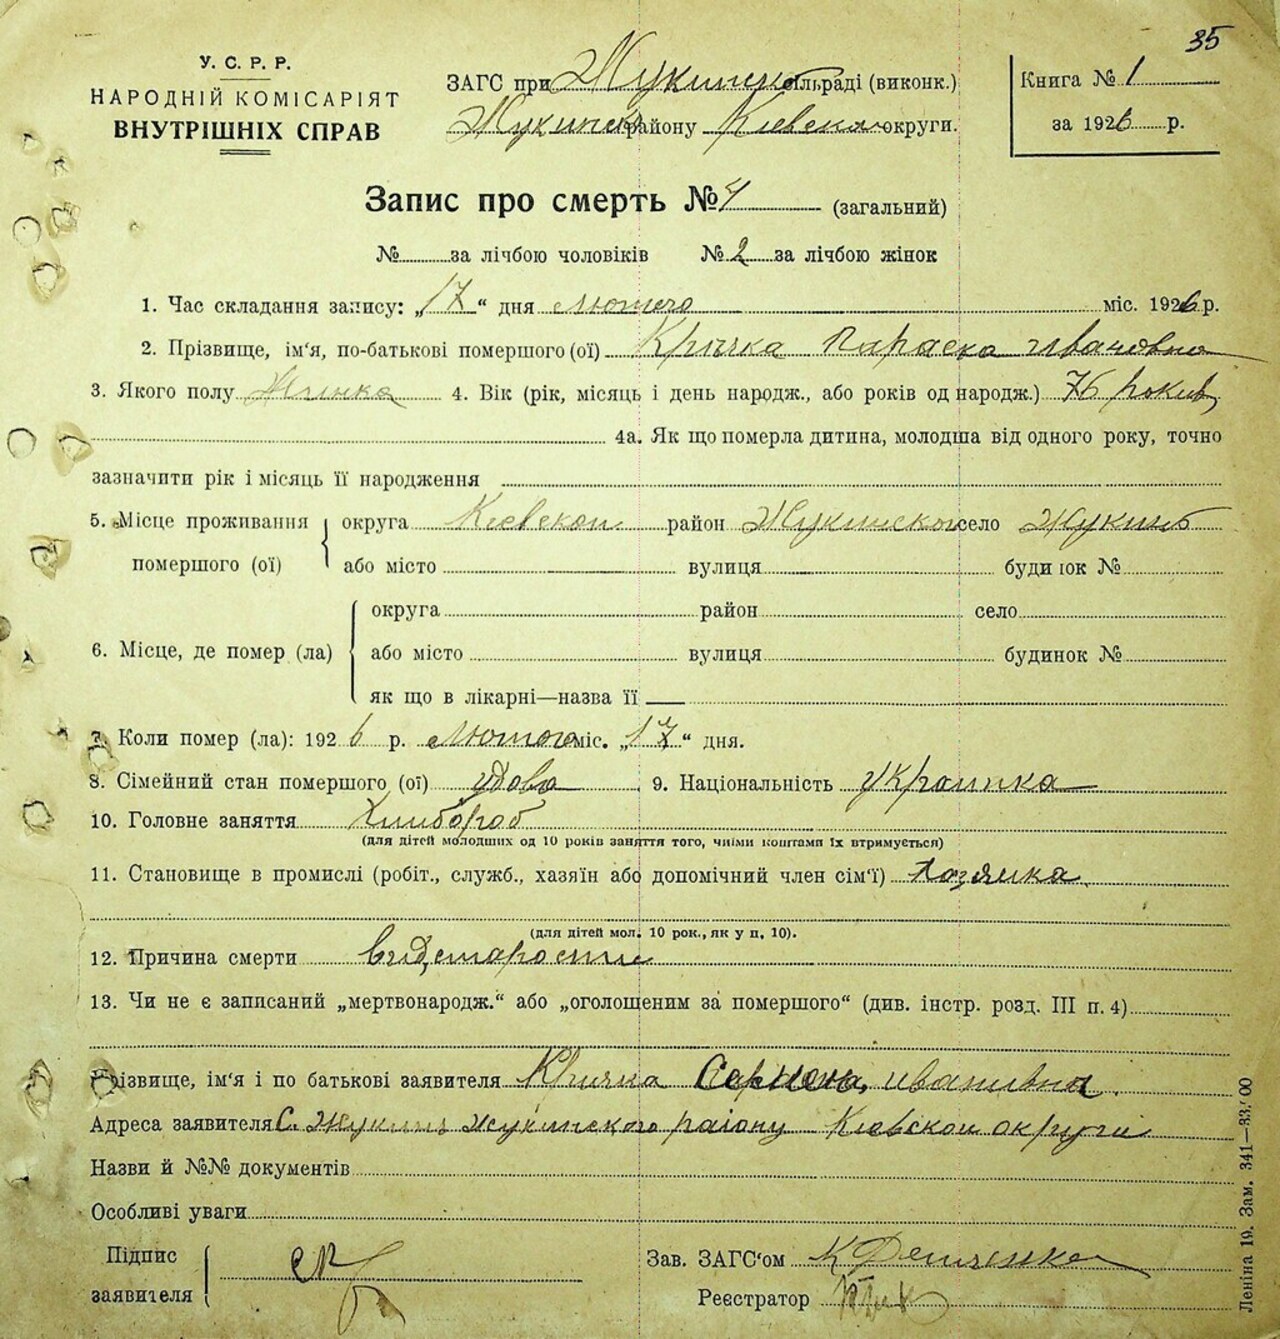 35
У. С. Р. Р.
НАРОДНІЙ КОМІСАРІЯТ
ВНУТРІШНІХ СПРАВ
ЗАГС при Жукинск сільраді (виконк.)
Жукинск району Кіевская округи.
Книга № 1
за 1926 р.
Запис про смерть № 4 (загальний)
№ за лічбою чоловіків № 2 за лічбою жінок
1. Час складання запису: „17“ дня лютого міс. 1926 р.
2. Прізвище, ім'я, по-батькові помершого (ої) Кричка Параска Ивановна
3. Якого полу Жинка 4. Вік (рік, місяць і день народж., або років од народж.) 76 рокив
4а. Як що померла дитина, молодша від одного року, точно
зазначити рік і місяць її народження
5. Місце проживання помершого (ої) округа Кіевской район Жукинского село Жукинь
або місто вулиця будинок №
6. Місце, де помер (ла) округа район село
або місто вулиця будинок №
як що в лікарні—назва її
7. Коли помер (ла): 1926 р. лютого міс. „17“ дня.
8. Сімейний стан помершого (ої) удова 9. Національність украинка
10. Головне заняття Хлибороб
(для дітей молодших од 10 років заняття того, чиїми коштами їх втримується)
11. Становище в промислі (робіт., служб., хазяїн або допомічний член сім'ї) Хозяика
(для дітей мол. 10 рок., як у п. 10).
12. Причина смерти вид старости
13. Чи не є записаний „мертвонародж.“ або „оголошеним за помершого“ (див. інстр. розд. III п. 4)
Прізвище, ім'я і по батькові заявителя Кричка
Адреса заявителя С. Жукинь Жукинского району Кіевской округи
Назви й №№ документів
Особливі уваги
Підпис заявителя
Зав. ЗАГС'ом
Реєстратор
Леніна 19. Зам. 341—33.000